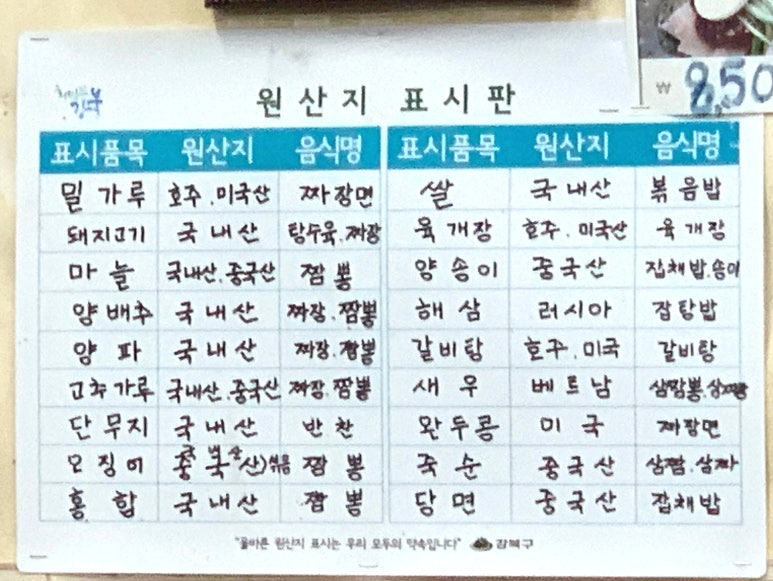 8,50
₩
강북
원산지 표시판
표시품목 원산지 음식명 표시품목 원산지 음식명
밀가루 호주.미국산 짜장면 쌀 국내산 볶음밥
돼지고기 국내산 탕수육.짜장 육개장 호주.미국산 육개장
마늘 국내산.중국산 짬뽕 양송이 중국산 잡채밥.송이
양배추 국내산 짜장.짬뽕 해삼 러시아 잡탕밥
양파 국내산 짜장.짬뽕 갈비탕 호주.미국 갈비탕
고추가루 국내산.중국산 짜장.짬뽕 새우 베트남 삼짬뽕.삼짜장
단무지 국내산 반찬 완두콩 미국 짜장면
오징어 중국산 짬뽕 죽순 중국산 삼짬.삼짜
홍합 국내산 짬뽕 당면 중국산 잡채밥
"올바른 원산지 표시는 우리 모두의 약속입니다" 강북구